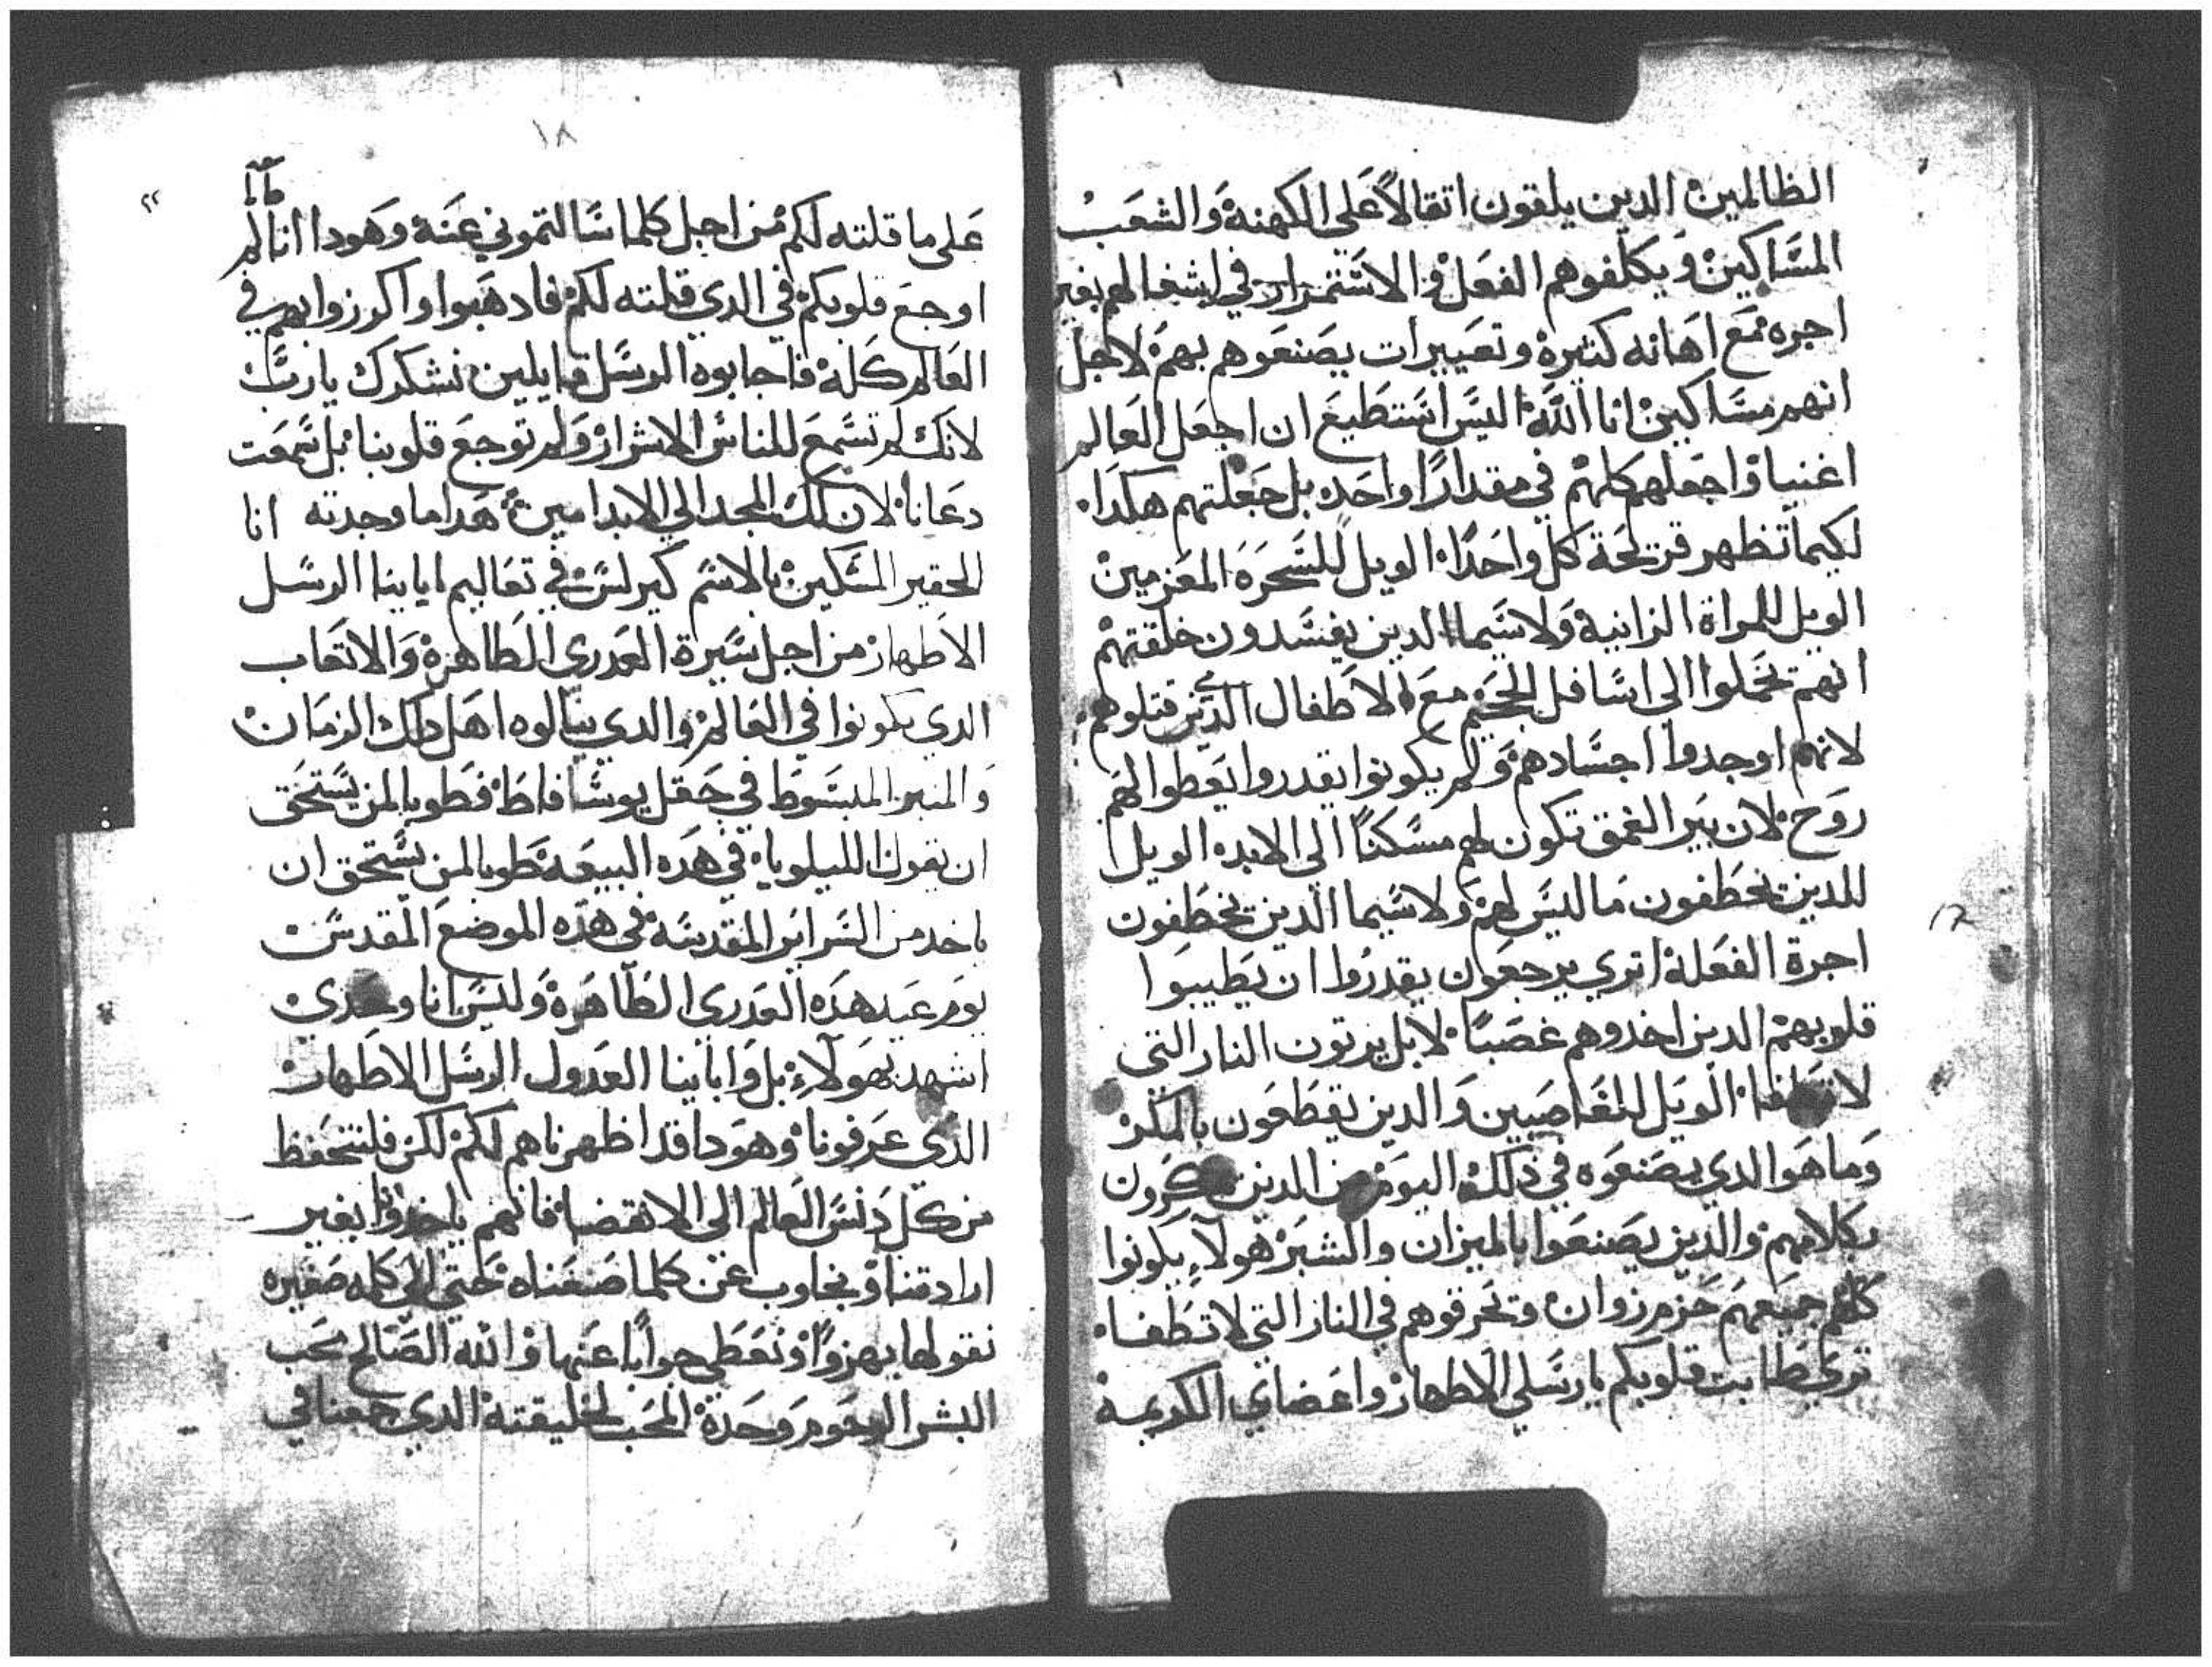 الظالمين الدين يلقون اتقالاً على الكهنة والشعب
المساكين ويكلفوهم الفعل والاستتمرار في اشغالهم بغير
اجره مع اهانه كتيرة وتعييرات يصنعوهم بهم لاجل
انهم مساكين انا الله اليس استطيع ان اجعل العالم
اغنيا واجعلهم كلهم في مقدارًا واحده بل جعلتهم هكدا
لكيما تظهر قريحة كل واحدًا الويل للسحرة المعزمين
الويل للمراة الزانية ولاسيما الدين يفسدون خلقتهم
انهم تحملوا الي اسافل الجحيم مع الاطفال الدين قتلوهم
لانهم اوجدوا اجسادهم ولم يكونوا يقدروا يعطوا لهم
روح لان بير الغمق تكون لهم مسكنًا الي الابد الويل
للدين تخطفون ما ليس لهم ولاسيما الدين تخطفون
اجرة الفعلة اتري يرجعون يقدروا ان يطيبوا
قلوبهم الدين اخدوهم غصبًا لا بل يورتون النار التي
لا تطفا الويل للغاصبين والدين يقطعون بالمكر
وما هوا الدي يصنعوه في ذلك اليوم من الدين
بكلامهم والدين يصنعوا بالميزان والشبر هولاء يكونوا
كلهم جميعهم حزم زوان وتحرقوهم في النار التي لا تطفا
تري طابت قلوبكم يا رسلي الاطهار واعضاي الكريمة
١٧
١٨
على ما قلته لكم من اجل كلما سالتموني عنه وهودا انا لم
اوجع قلوبكم في الدي قلته لكم فادهبوا واكرزوا بهم في
العالم كله فاجابوه الرسل قايلين نشكرك يا رب
لانك لم تسمع للناس الاشرار ولم توجع قلوبنا بل سمعت
دعانا لان لك المجد الي الابد امين هدا ما وجدته انا
الحقير المسكين بالاسم كيرلس في تعاليم ابايينا الرسل
الاطهار من اجل سيرة العدري الطاهرة والاتعاب
الدي يكونوا في العالم والدي ينالوه اهل دلك الزمان
والمنبر المبسوطا في حقل يوشافاط فطوبا لمن يستحق
ان يقول الليلويا في هده البيعة طوبا لمن يستحق ان
ياخد من السراير المقدسة في هده الموضع المقدس
يوم عيد هده العدري الطاهرة وليس انا وحدي
اشهد بهولاء بل وابايينا العدول الرسل الاطهار
الدي عرفونا وهودا قد اظهرناهم لكم لكن فلنتحفظ
من كل دنس العالم الى الانقضا فانهم ياخدونا بغير
ارادتنا ونجاوب عن كلما صنعناه حتي الي كلمه صغيره
نقولها بهزوًا ونعطي جوابًا عنها والله الصالح محب
البشر الرحوم وحدة المحب لخليقته الدي جمعنا في